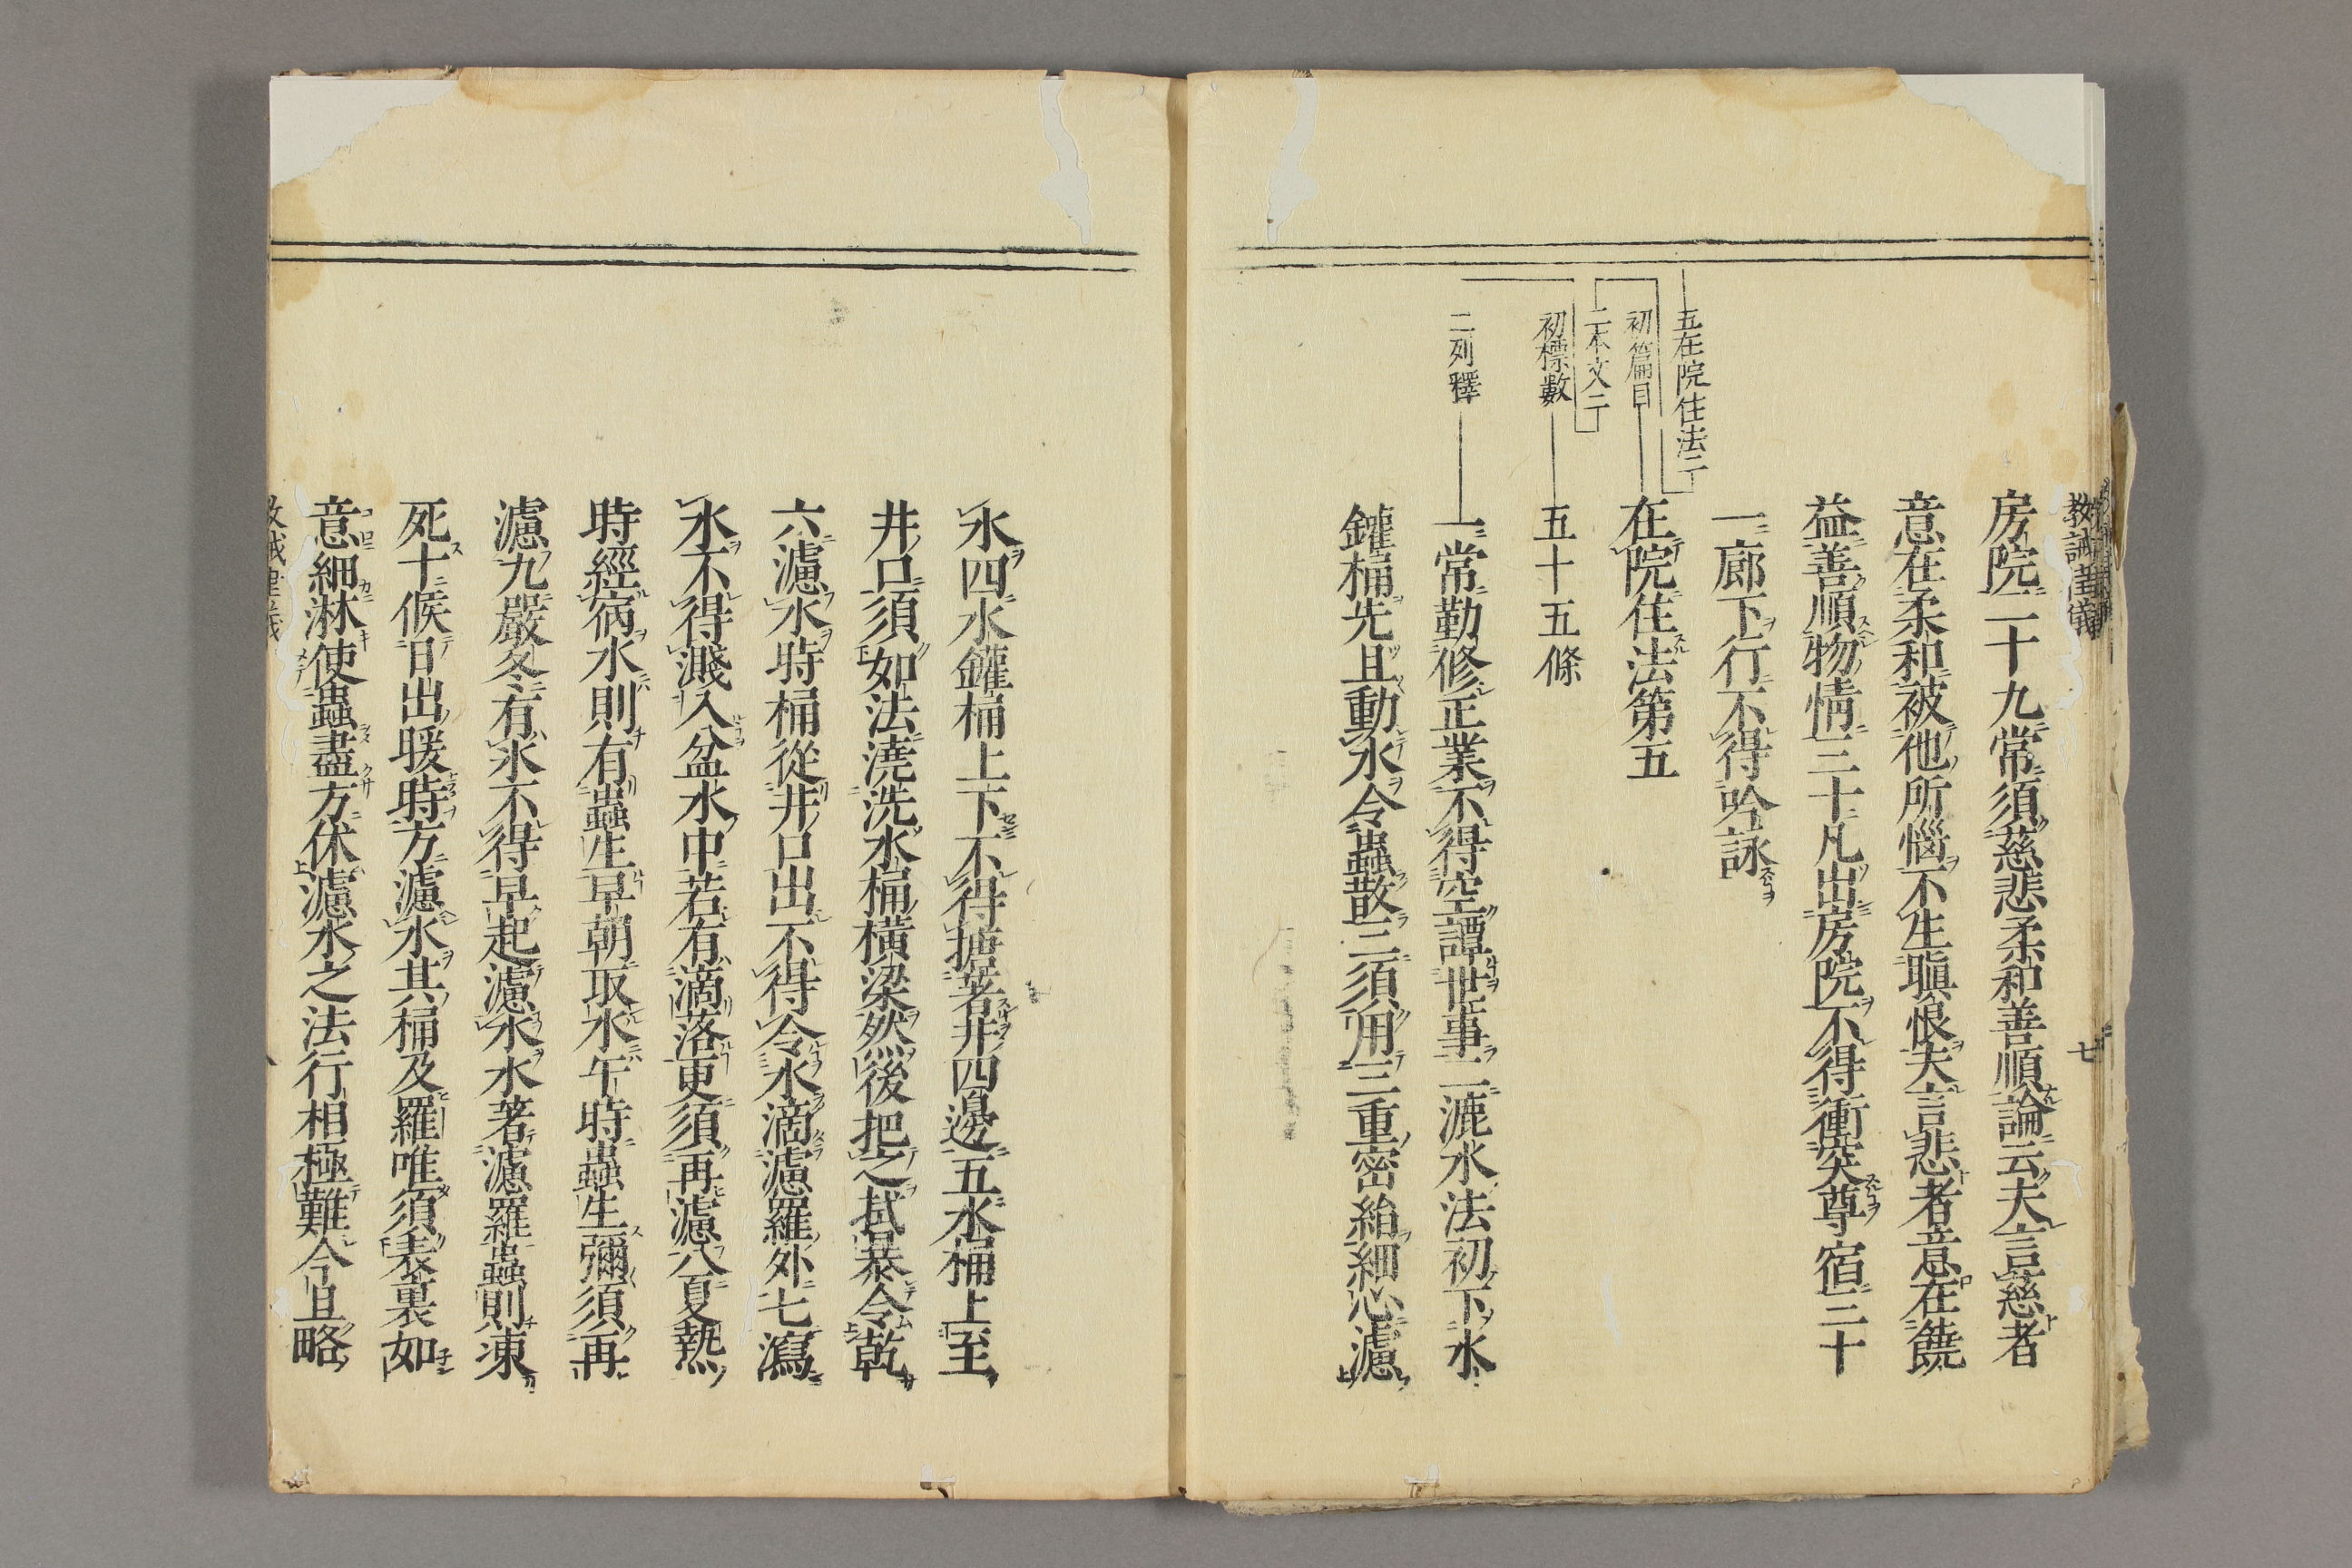 教誡律儀
七
房院二十九常須慈悲柔和善順論云夫言慈者
意在柔和被他所惱不生瞋恨夫言悲者意在饒
益善順物情三十凡出房院不得衝突尊宿三十
一廊下行不得吟詠
五在院住法二
初篇目
在院住法第五
二本文二
初標數
五十五條
二列釋
一常勤修正業不得空譚世事二漉水法初下水
鑵桶先且動水令蟲散三須用三重密絹細心濾
水四水鑵桶上下不得搪著井四邊五水桶上至
井口須如法澆洗水桶橫梁然後把之拭暴令乾
六濾水時桶從井口出不得令水滴濾羅外七瀉
水不得濺入盆水中若有滴落更須再濾八夏熱
時經病水則有蟲生早朝取水午時蟲生彌須再
濾九嚴冬有氷不得早起濾水水著濾羅蟲則凍
死十候日出暖時方濾水其桶及羅唯須表裏如
意細淋使蟲盡方休濾水之法行相極難今且略